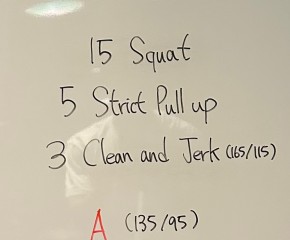 15 Squat
5 Strict Pull up
3 Clean and Jerk (165/115)
A (135/95)